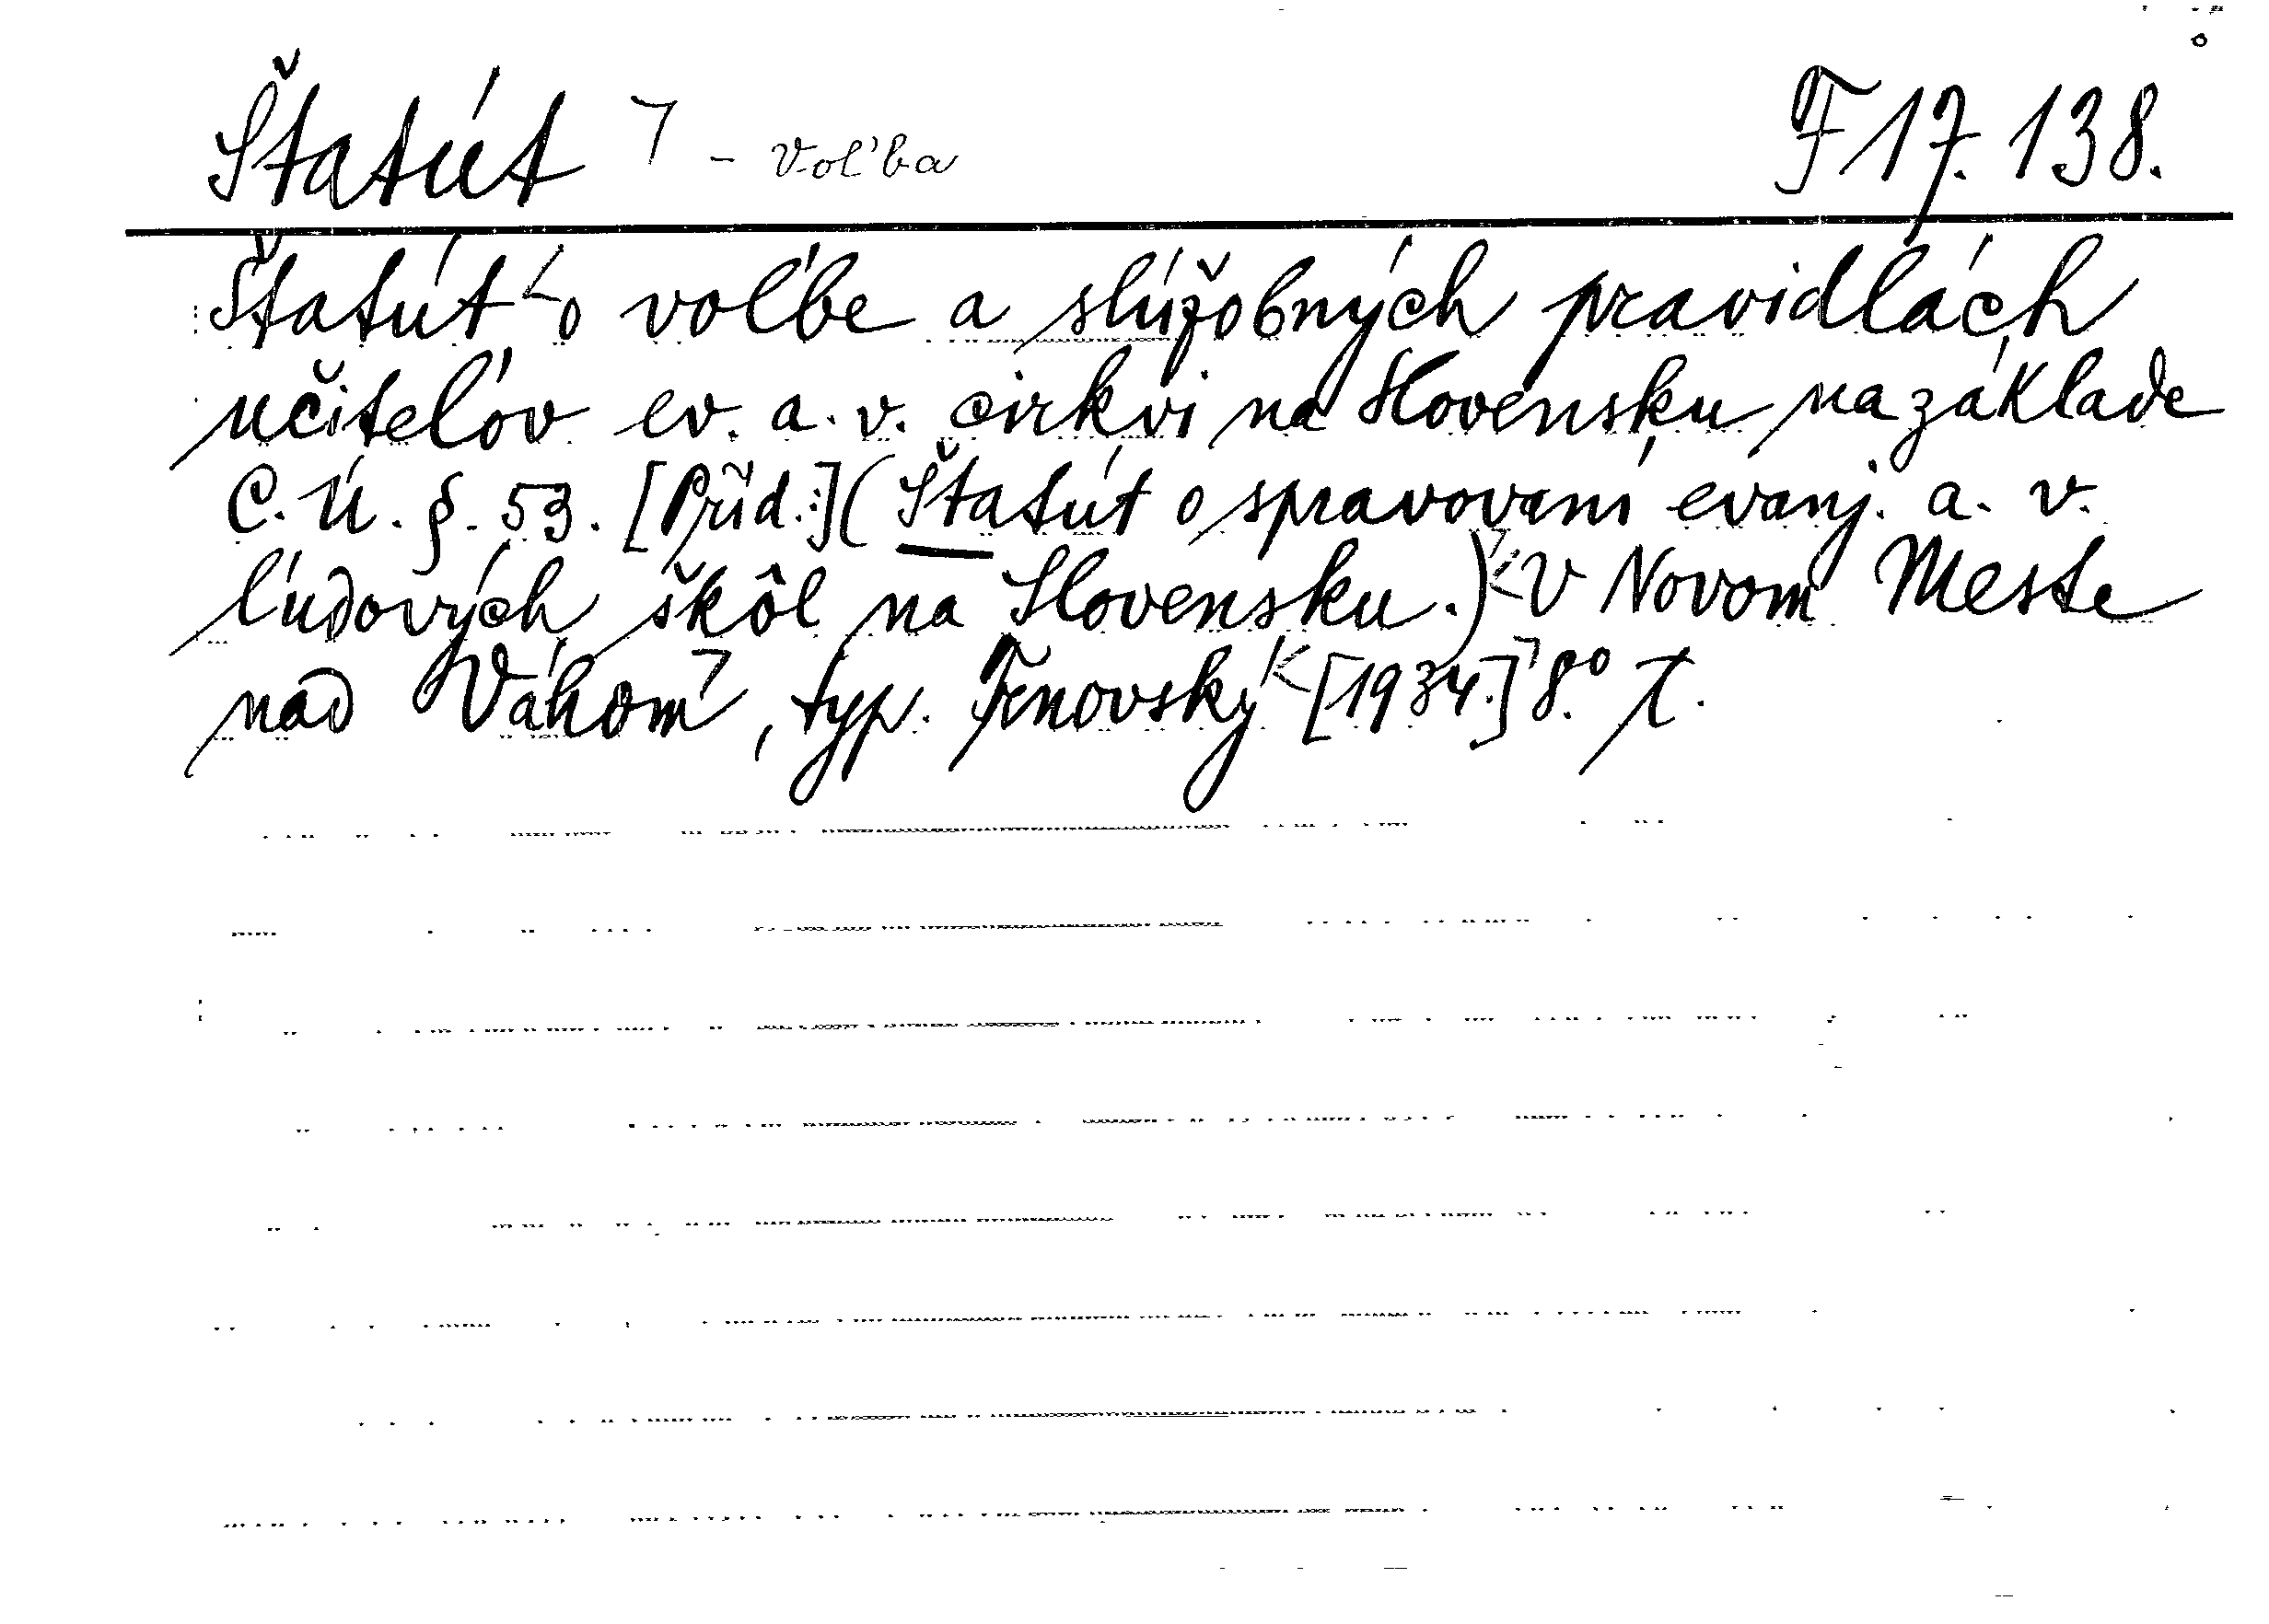 Štatút - voľba F 17.138.
Štatút o voľbe a slúžobných pravidlách
učiteľov ev. a. v. cirkvi na Slovensku na základe
C. Ú. §. 53. [Příd.:] (Štatút o spravovaní evanj. a. v.
ľudových škôl na Slovensku.) V Novom Meste
nad Váhom, typ. Trnovský [1934.] 8°